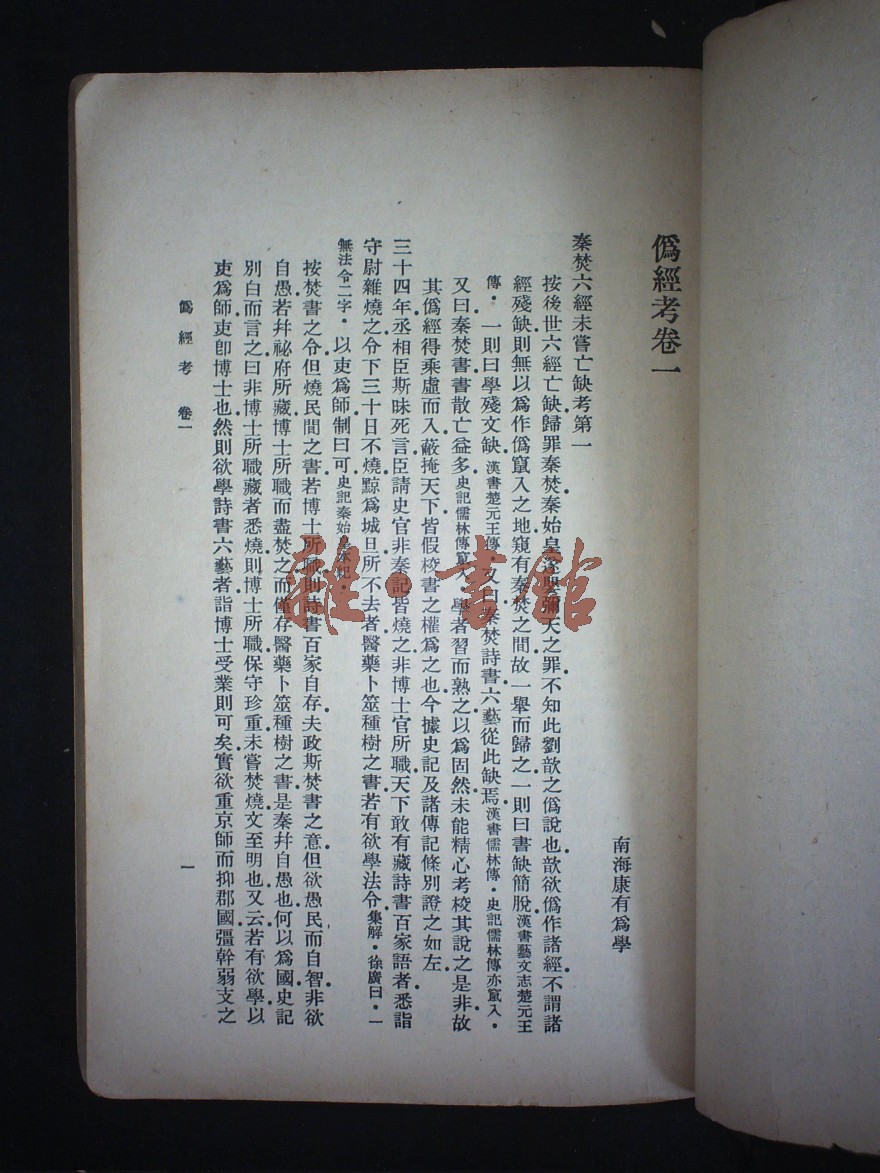 僞經考卷一
南海康有爲學
秦焚六經未嘗亡缺考第一
按後世六經亡缺歸罪秦焚秦始皇遂嬰彌天之罪不知此劉歆之僞說也歆欲僞作諸經不謂諸
經殘缺則無以爲作僞竄入之地窺有秦焚之間故一舉而歸之一則曰書缺簡脫漢書藝文志楚元王
傳。一則曰學殘文缺漢書楚元王傳。又曰秦焚詩書六藝從此缺焉漢書儒林傳。史記儒林傳亦竄入。
又曰秦焚書書散亡益多史記儒林傳竄入。學者習而熟之以爲固然未能精心考校其說之是非故
其僞經得乘虛而入蔽掩天下皆假校書之權爲之也今據史記及諸傳記條別證之如左
三十四年丞相臣斯昧死言臣請史官非秦記皆燒之非博士官所職天下敢有藏詩書百家語者悉詣
守尉雜燒之令下三十日不燒黥爲城旦所不去者醫藥卜筮種樹之書若有欲學法令集解。徐廣曰。一
無法令二字。以吏爲師制曰可史記秦始皇本紀。
按焚書之令但燒民間之書若博士所職則詩書百家自存夫政斯焚書之意但欲愚民而自智非欲
自愚若幷祕府所藏博士所職而盡焚之而僅存醫藥卜筮種樹之書是秦幷自愚也何以爲國史記
別白而言之曰非博士所職藏者悉燒則博士所職保守珍重未嘗焚燒文至明也又云若有欲學以
吏爲師吏卽博士也然則欲學詩書六藝者詣博士受業則可矣實欲重京師而抑郡國彊幹弱支之
僞經考 卷一
一
雜·書館